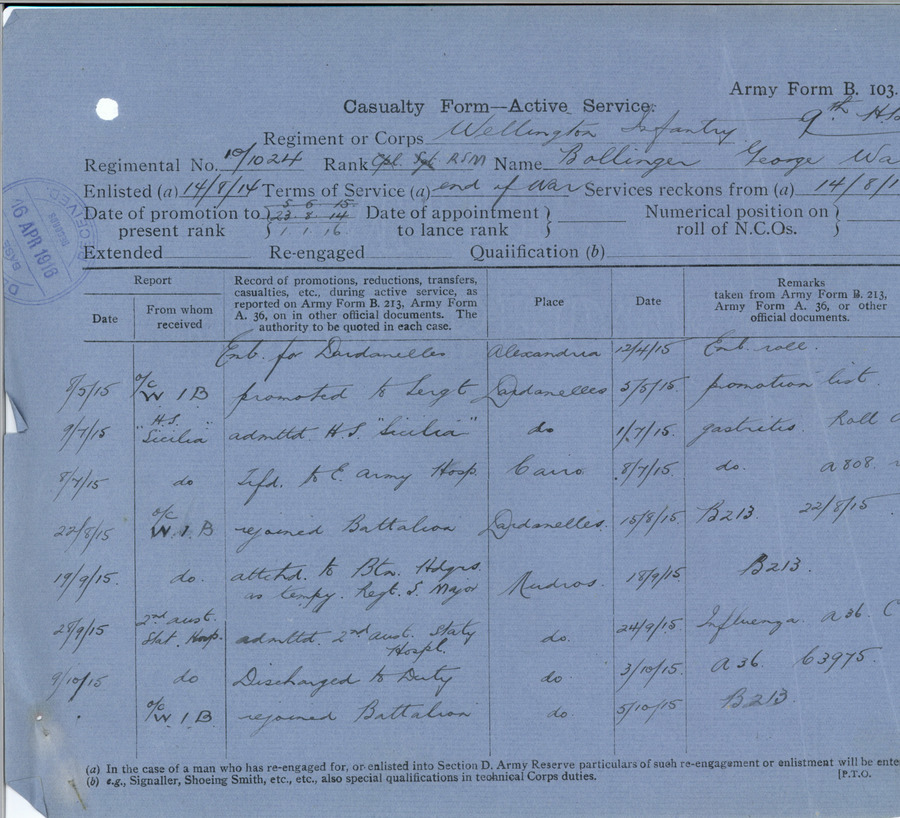 Army Form B. 103.
Casualty Form—Active Service.
9th H
Regiment or Corps Wellington Infantry
Regimental No. 10/1024 Rank Cpl. Sgt. RSM Name Bollinger George Wa
Enlisted (a) 14/8/14 Terms of Service (a) end of War Services reckons from (a) 14/8/1
5 6 15
Date of promotion to 23 8 14 Date of appointment Numerical position on
present rank 1 1 16 to lance rank roll of N.C.Os.
Extended Re-engaged Quaiification (b)
16 APR 1916
RECEIVED
BASE
Report
Date
From whom
received
Record of promotions, reductions, transfers,
casualties, etc., during active service, as
reported on Army Form B. 213, Army Form
A. 36, on in other official documents. The
authority to be quoted in each case.
Place
Date
Remarks
taken from Army Form B. 213,
Army Form A. 36, or other
official documents.
Emb. for Dardanelles Alexandria 12/4/15 Emb. roll.
8/5/15 o/c W I B promoted to Sergt Dardanelles 5/5/15 promotion list.
9/7/15 "H.S. Sicilia" admttd. H.S. "Sicilia" do 1/7/15. gastritis. Roll
8/7/15 do Trfd. to E. army Hosp. Cairo 8/7/15 do. a 808.
22/8/15 o/c W. I. B rejoined Battalion Dardanelles. 15/8/15 B213. 22/8/15
19/9/15. do. attchd. to Btn. Hdqrs.
as tempy. Regt. S. Major Mudros. 18/9/15 B213.
28/9/15 2nd aust. Stat. Hosp. admttd. 2nd aust. Staty
Hospl. do. 24/9/15 Influenza. a 36. C
9/10/15 do Discharged to Duty do 3/10/15. a 36. C3975.
o/c W. I B rejoined Battalion do 5/10/15 B213
(a) In the case of a man who has re-engaged for, or enlisted into Section D. Army Reserve particulars of such re-engagement or enlistment will be ente
(b) e.g., Signaller, Shoeing Smith, etc., etc., also special qualifications in technical Corps duties. [P.T.O.